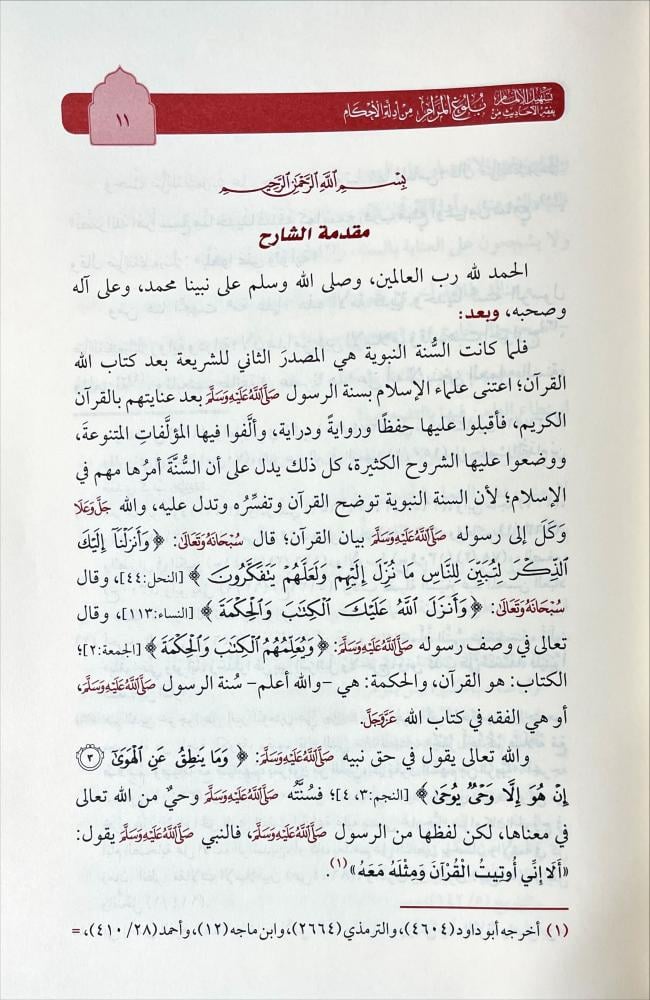 تسهيل الإلمام
بفقه الأحاديث من بلوغ المرام من أدلة الأحكام
١١
بِسْمِ اللَّهِ الرَّحْمَٰنِ الرَّحِيمِ
مقدمة الشارح
الحمد لله رب العالمين، وصلى الله وسلم على نبينا محمد، وعلى آله
وصحبه، وبعد:
فلما كانت السُّنة النبوية هي المصدرَ الثاني للشريعة بعد كتاب الله
القرآن؛ اعتنى علماء الإسلام بسنة الرسول صَلَّى اللَّهُ عَلَيْهِ وَسَلَّمَ بعد عنايتهم بالقرآن
الكريم، فأقبلوا عليها حفظًا وروايةً ودراية، وألَّفوا فيها المؤلَّفاتِ المتنوعةَ،
ووضعوا عليها الشروح الكثيرة، كل ذلك يدل على أن السُّنَّةَ أمرُها مهم في
الإسلام؛ لأن السنة النبوية توضح القرآن وتفسِّره وتدل عليه، والله جَلَّ وَعَلَا
وَكَلَ إلى رسوله صَلَّى اللَّهُ عَلَيْهِ وَسَلَّمَ بيان القرآن؛ قال سُبْحَانَهُ وَتَعَالَى: ﴿وَأَنزَلْنَآ إِلَيْكَ
ٱلذِّكْرَ لِتُبَيِّنَ لِلنَّاسِ مَا نُزِّلَ إِلَيْهِمْ وَلَعَلَّهُمْ يَتَفَكَّرُونَ﴾ [النحل:٤٤]، وقال
سُبْحَانَهُ وَتَعَالَى: ﴿وَأَنزَلَ ٱللَّهُ عَلَيْكَ ٱلْكِتَٰبَ وَٱلْحِكْمَةَ﴾ [النساء:١١٣]، وقال
تعالى في وصف رسوله صَلَّى اللَّهُ عَلَيْهِ وَسَلَّمَ: ﴿وَيُعَلِّمُهُمُ ٱلْكِتَٰبَ وَٱلْحِكْمَةَ﴾ [الجمعة:٢]؛
الكتاب: هو القرآن، والحكمة: هي -والله أعلم- سُنة الرسول صَلَّى اللَّهُ عَلَيْهِ وَسَلَّمَ،
أو هي الفقه في كتاب الله عَزَّ وَجَلَّ.
والله تعالى يقول في حق نبيه صَلَّى اللَّهُ عَلَيْهِ وَسَلَّمَ: ﴿وَمَا يَنطِقُ عَنِ ٱلْهَوَىٰٓ ٣
إِنْ هُوَ إِلَّا وَحْىٌ يُوحَىٰ﴾ [النجم:٣، ٤]؛ فسُنَّتُه صَلَّى اللَّهُ عَلَيْهِ وَسَلَّمَ وحيٌ من الله تعالى
في معناها، لكن لفظها من الرسول صَلَّى اللَّهُ عَلَيْهِ وَسَلَّمَ، فالنبي صَلَّى اللَّهُ عَلَيْهِ وَسَلَّمَ يقول:
«أَلَا إِنِّي أُوتِيتُ الْقُرْآنَ وَمِثْلَهُ مَعَهُ»(١).
(١) أخرجه أبو داود (٤٦٠٤)، والترمذي (٢٦٦٤)، وابن ماجه (١٢)، وأحمد (٢٨/ ٤١٠)، =